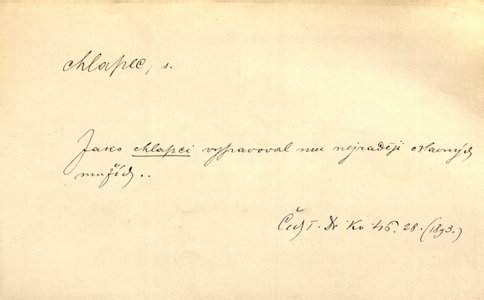 chlapec, s.
Jako chlapci vypravoval mu nejraději o slavných
mužích..
Čech. Dr Kv 46. 28. (1893.)